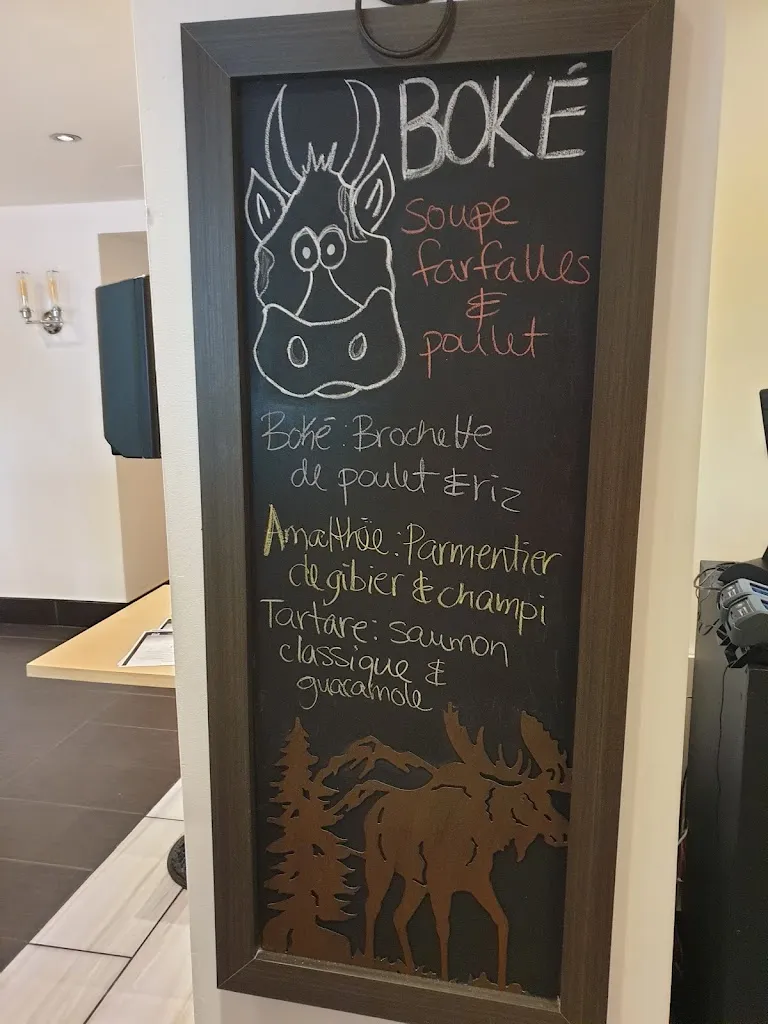 BOKÉ
soupe
farfalles
&
poulet
Boké : Brochette
de poulet & riz
Amatthée : Parmentier
de gibier & champi
Tartare : saumon
classique &
guacamole